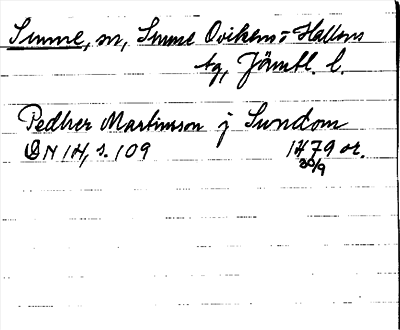 Sunne, sn, Sunne Oviken o Hallens
tg, Jämtl. l.
Pedher Martinsson j Sundom
DN 14, s. 109 1479 or.
30/9